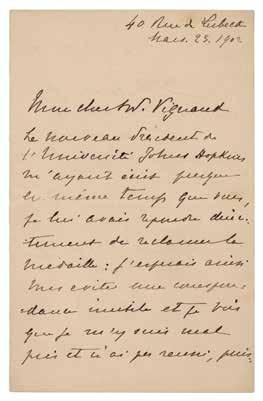 40 Rue de Lubeck
Mars. 25. 1902
Mon cher M. Vignaud
Le nouveau Président de
l'Université Johns Hopkins
m'ayant écrit presque
en même temps que vous,
je lui avais répondu direc-
tement de réclamer la
médaille : j'espérais ainsi
vous éviter une correspon-
dance inutile et je vois
que je m'y suis mal
pris et n'ai pas réussi, puis-